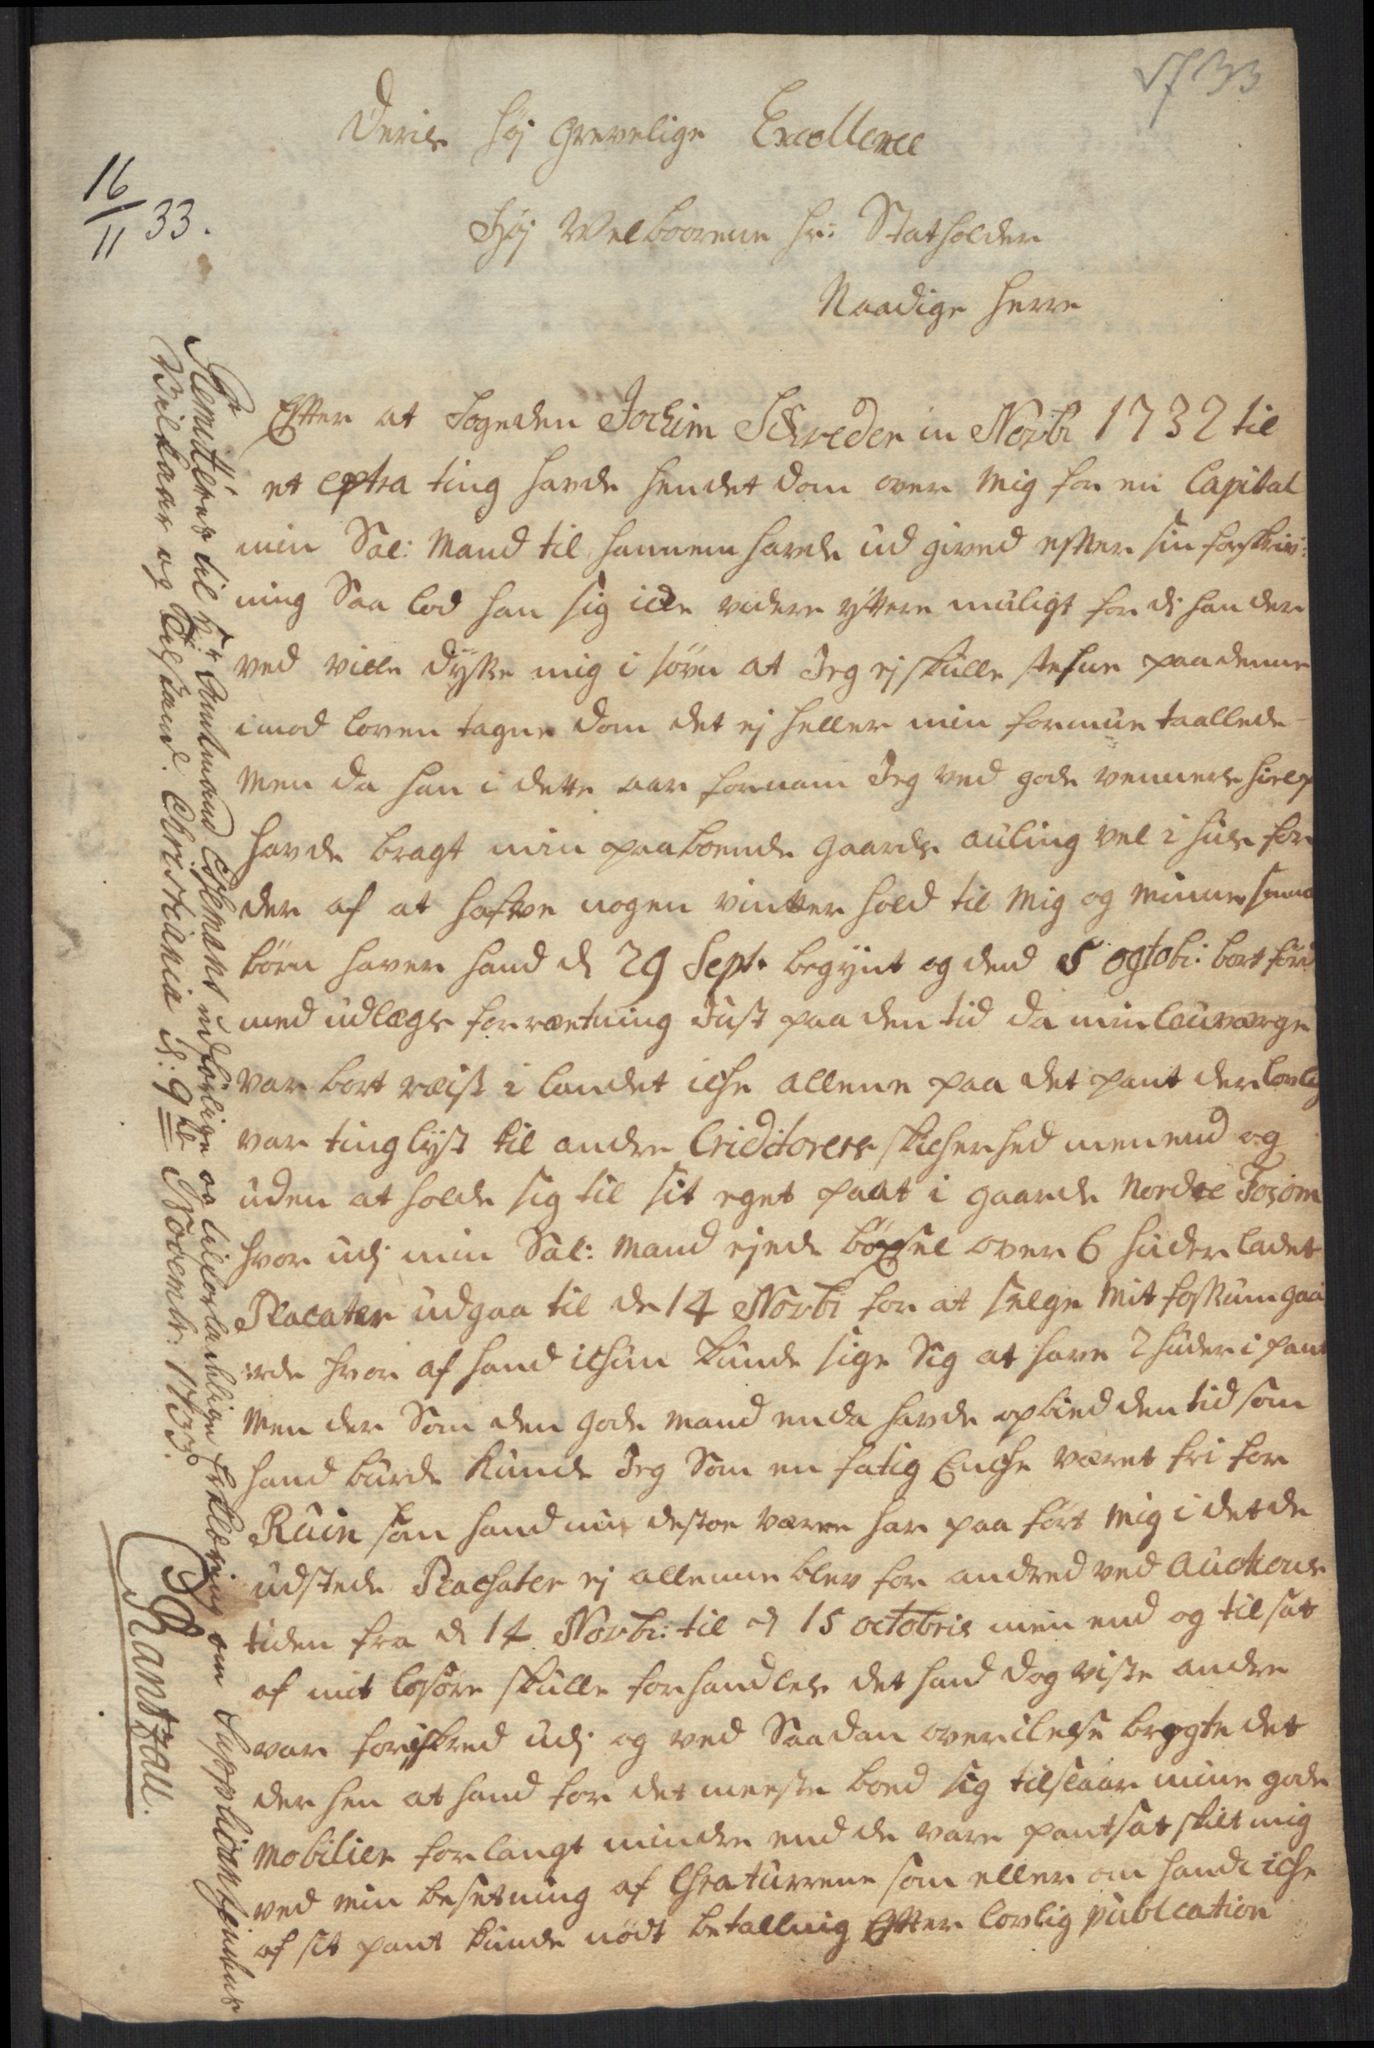 Deris høj grevelige Excellence
16/11 33.
Høj Welboorene hr: Statholder
Naadige herre
Efter at fogeden Jochim Schreder in Novbr 1732 til
et extra ting havde hendet dom over mig for en Capital
min Sal: Mand til hannem havde ud gived efter sin forskriv:
ning Saa lod han sig icke videre yttere muligt fordi han der
ved ville dysse mig i søvn at Jeg ej skulle stefne paa denne
imod loven tagne dom det ej heller min formue taallede
Men da han i dette aar fornam Jeg ved gode venners hielp
havde bragt min paaboende gaards auling vel i huus for
der af at hafve nogen vintter hold til mig og minne smaa
børn haver hand d 29 Sept. begynt og dend 5 ogtobr: bort ført
med udlægs forrætning Just paa den tid da min lauværge
var bort ræist i landet iche allene paa det pant der lovlig
var tinglyst til andre Criditorers sikherhed men end og
uden at holde sig til sit eget pant i gaarde Nordre Fosom
hvor udj min Sal: Mand ejede bøxsel over 6 huder ladet
Placater udgaa til de 14 Novbr for at selge Mit fosskum gaa
:rde hvor af hand ichun kunde sige Sig at have 2 huder i pant
Men der Som den gode mand enda havde opbied den tid som
hand burde kunde Jeg Som en fatig Enche været fri for
Ruin som hand nu desto værre har paa ført mig i det de
udstede Plachater ej allenne blev for andred ved Auctions
tiden fra d 14 Novbr: til d 15 octobris men end og tilsat
af mit løsøre skulle forhandles det hand dog viste andre
var forskred udj og ved Saadan overilelse bragte det
der hen at hand for det meeste boed sig tilslaar mine gode
Mobilier for langt mindre end de vare pantsat skilt mig
ved min besetning af Chraturrene som eller om hand iche
af sit pant kunde nødt betalling Efter lovlig publcation
Remitteres til Hr Amtmand Essmans nedførlige og tilforladelige Erklæring om Supplicantindens
Vilkaar og Tilstand. Christiania d: 9de Novembr: 1733.
Rantzau.